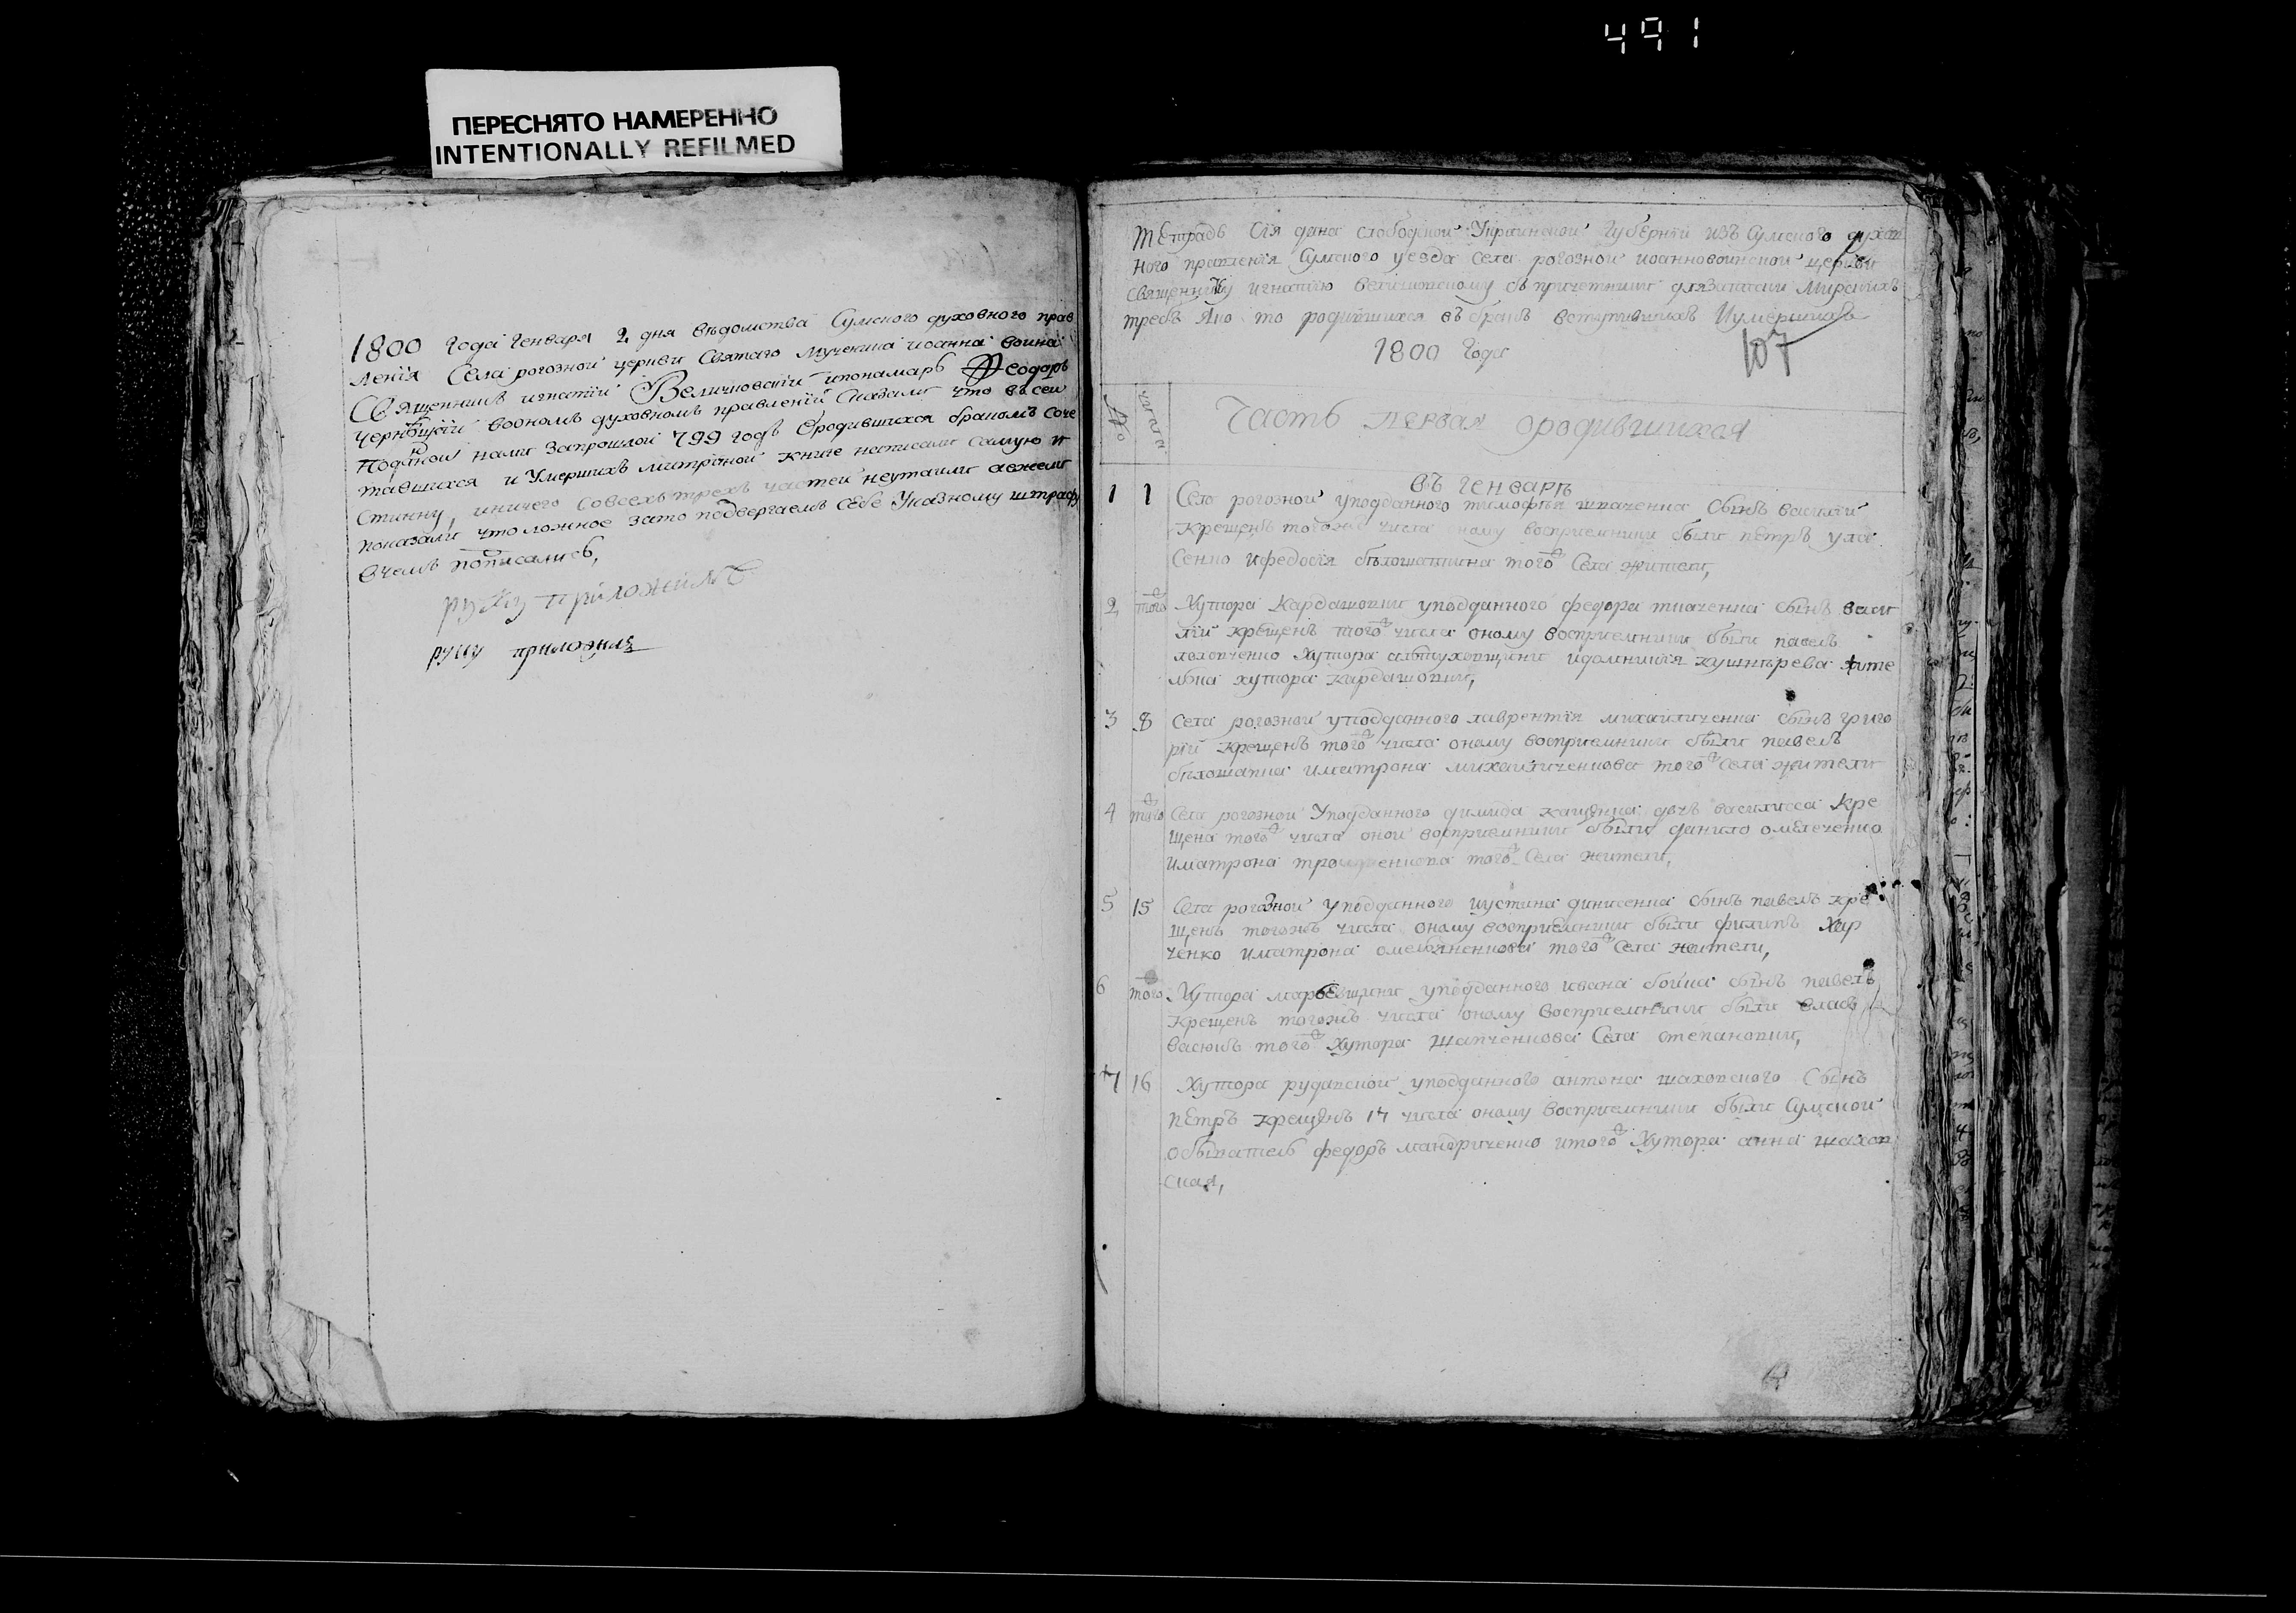 491
ПЕРЕСНЯТО НАМЕРЕННО
INTENTIONALLY REFILMED
1800 Года Генваря 2 дня вѣдомства Сумского духовного прав
ленія Села рогозной церкви Святаго мученика иоанна воина
Священникъ игнатій Величковскій ипономарь Феодоръ
воономъ духовномъ правленіи сказали что въсей
нами запрошлой 799 годъ Ородившихся бракомъ соче
тавшихся и Умершихъ митрічной книге написали самую и
стинну, иничего совсехъ трехъ частей неутаили аежели
показали что ложное зато подвергаемъ Себе Указному штрафу
вчемъ подписались,
руку приложилъ
руку приложилъ
Тетрадь Сія дана слободской Украинской Губерніи изъ Сумского духов
ного правленія Сумского уезда села рогозной иоанновоинской церкви
священнику игнатію величковскому съ причетники длязаписки мирскихъ
требъ Яко то родившихся въ бракъ вступившихъ Иумершихъ
1800 Года
107
№ числа
Часть первая ородившихся
въ генварѣ
1 1 Села рогозной уподданного тимофѣя ткаченка Сынъ василій
крещенъ тогожъ числа оному восприемники были петръ
ифедосія бѣлошапкина того ж Села жители,
2 того ж Хутора Кардашовки уподданного федора ткаченка сынъ васи
лій крещенъ того ж числа оному восприемники были павелъ
хутора идомникія кушнѣрева жите
льна хутора кардашовки,
3 8 Села рогозной уподданного лаврентія михайличенка сынъ григо
рій крещенъ того ж числа оному восприемники были павелъ
бѣлошапка иматрона михайличенкова того ж села жители
4 того ж Села рогозной Уподданного димида кащенка дочь василиса кре
щена того ж числа оной восприемники были данило омелченко
иматрона того ж Села жители,
5 15 Села рогозной уподданного иустина динисенка сынъ павелъ кре
щенъ тогожъ числа оному восприемники были филипъ Хар
ченко иматрона омельяненкова того ж Села жители,
6 того ж Хутора уподданного ивана бойка сынъ павелъ
крещенъ тогожъ числа оному восприемники были власъ
васюкъ того ж Хутора Шапченкова Села степановки,
7 16 Хутора рудапской уподданного антона шаховского Сынъ
петръ крещенъ 17 числа оному восприемники были Сумской
обыватель федоръ мандриченко итого ж Хутора анна шахов
ская,